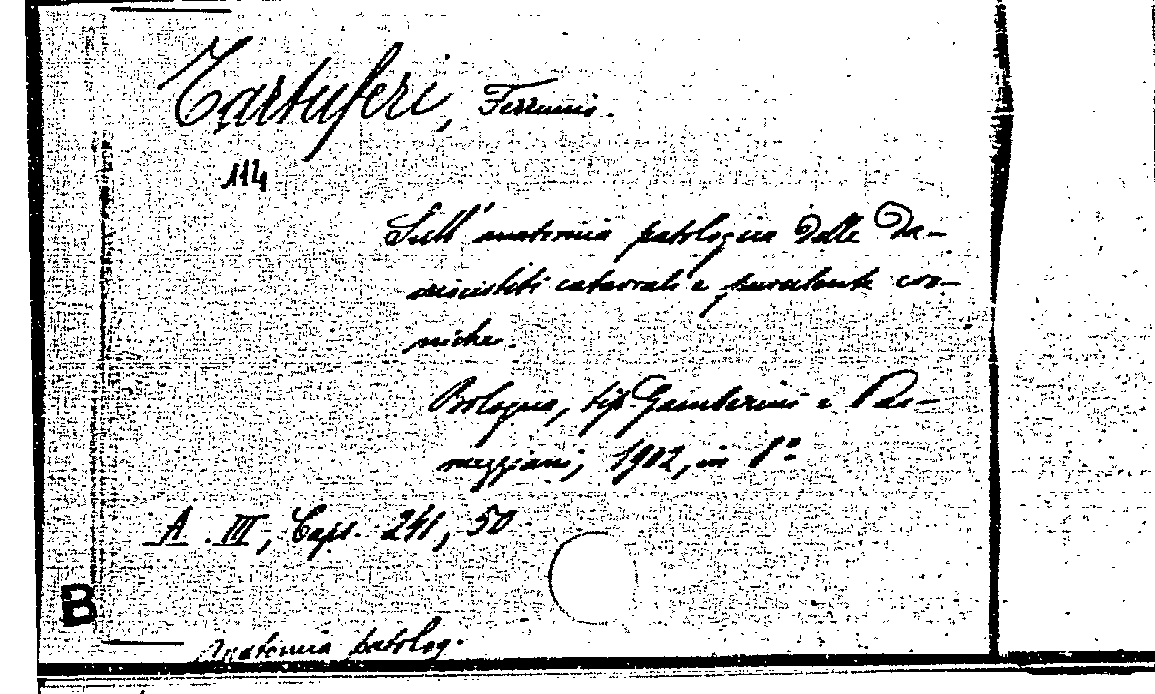 Tartuferi, Ferruccio.
114
Sull' anatomia patologica delle Da-
criocistiti catarrali e purulente cro-
niche.
Bologna, tip. Gamberini e Par-
meggiani, 1902, in 8°
A. III, Caps. 241, 50
B
Anatomia patolog.